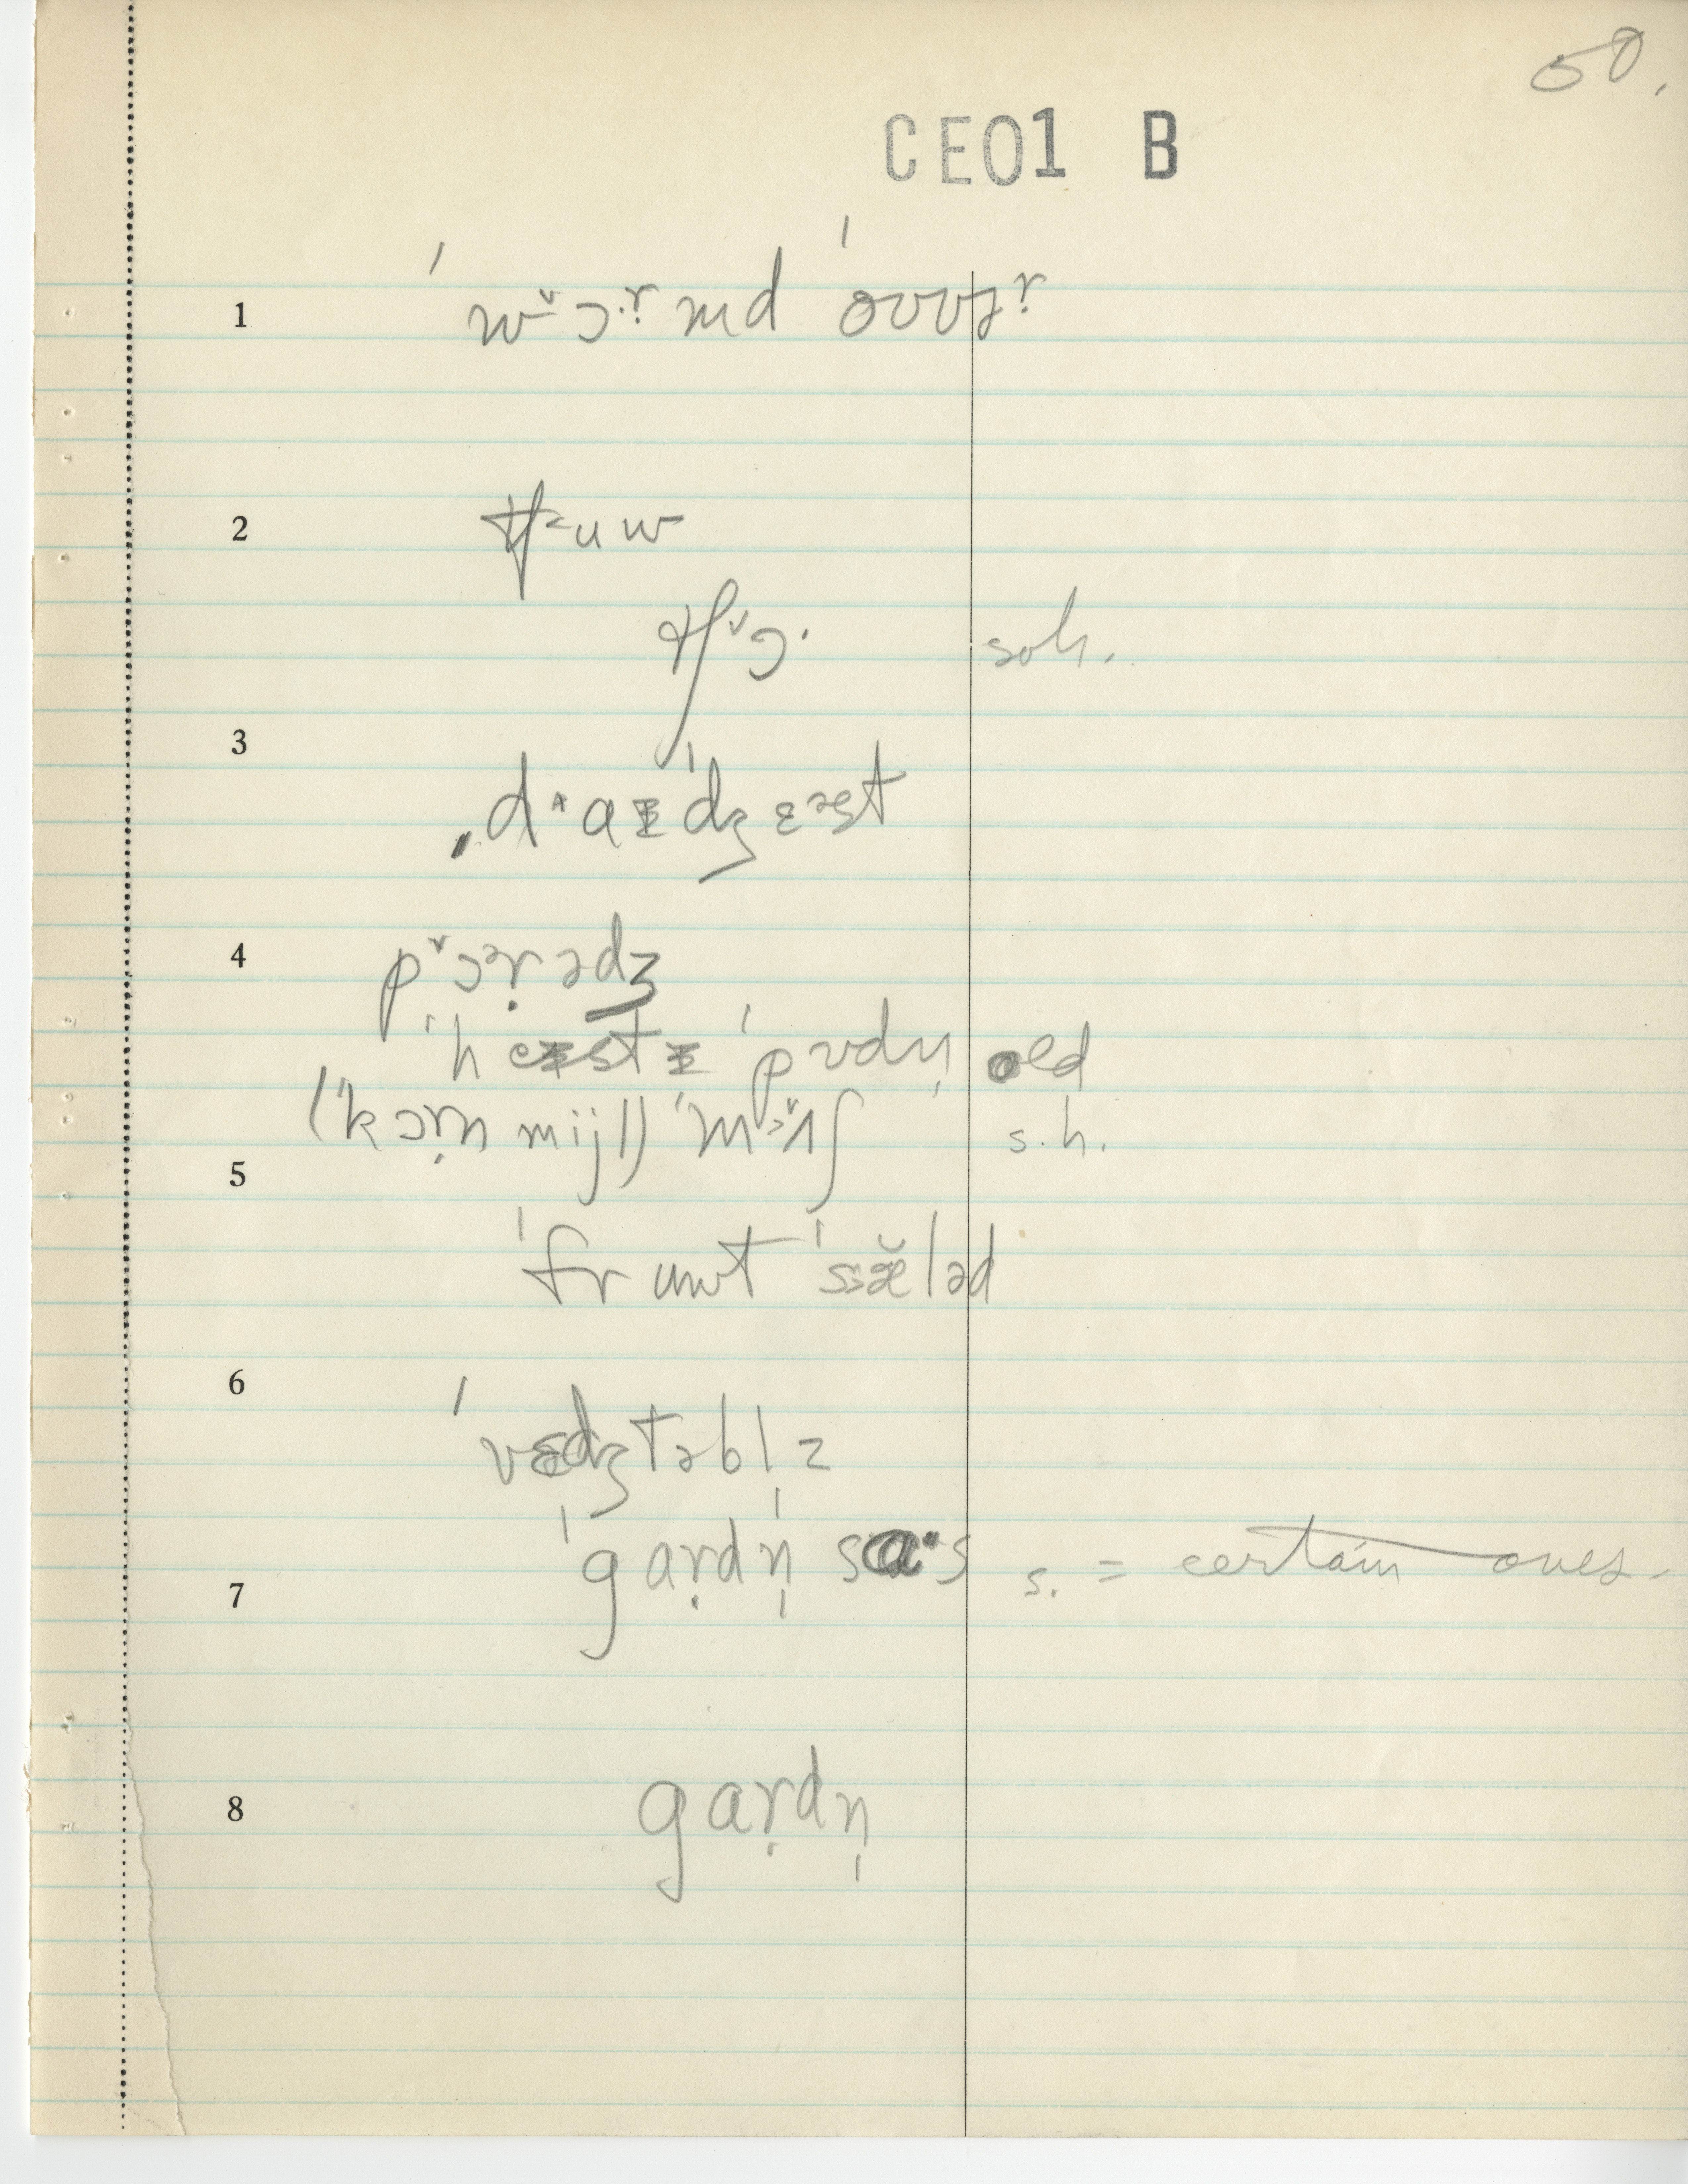 50.
CE01 B
1 ˈwˇɔ·ṛmd ˈoʊvɚṛ
2 tʃ˂uw
tʃˇɔ· soh.
3 ˌd˄aɪˈdʒɛəst
4 pˇɔəṛədʒ
ˈheɪstɪ ˈpʊdn̩ old
(ˈkɔṛn mijl) ˈmɔˇʃ s.h.
5
ˈfruwt ˈsæ̆ləd
6
ˈvɛdʒtəblz
ˈgaṛdn̩ sa·s s. = certain ones.
7
8 gaṛdn̩